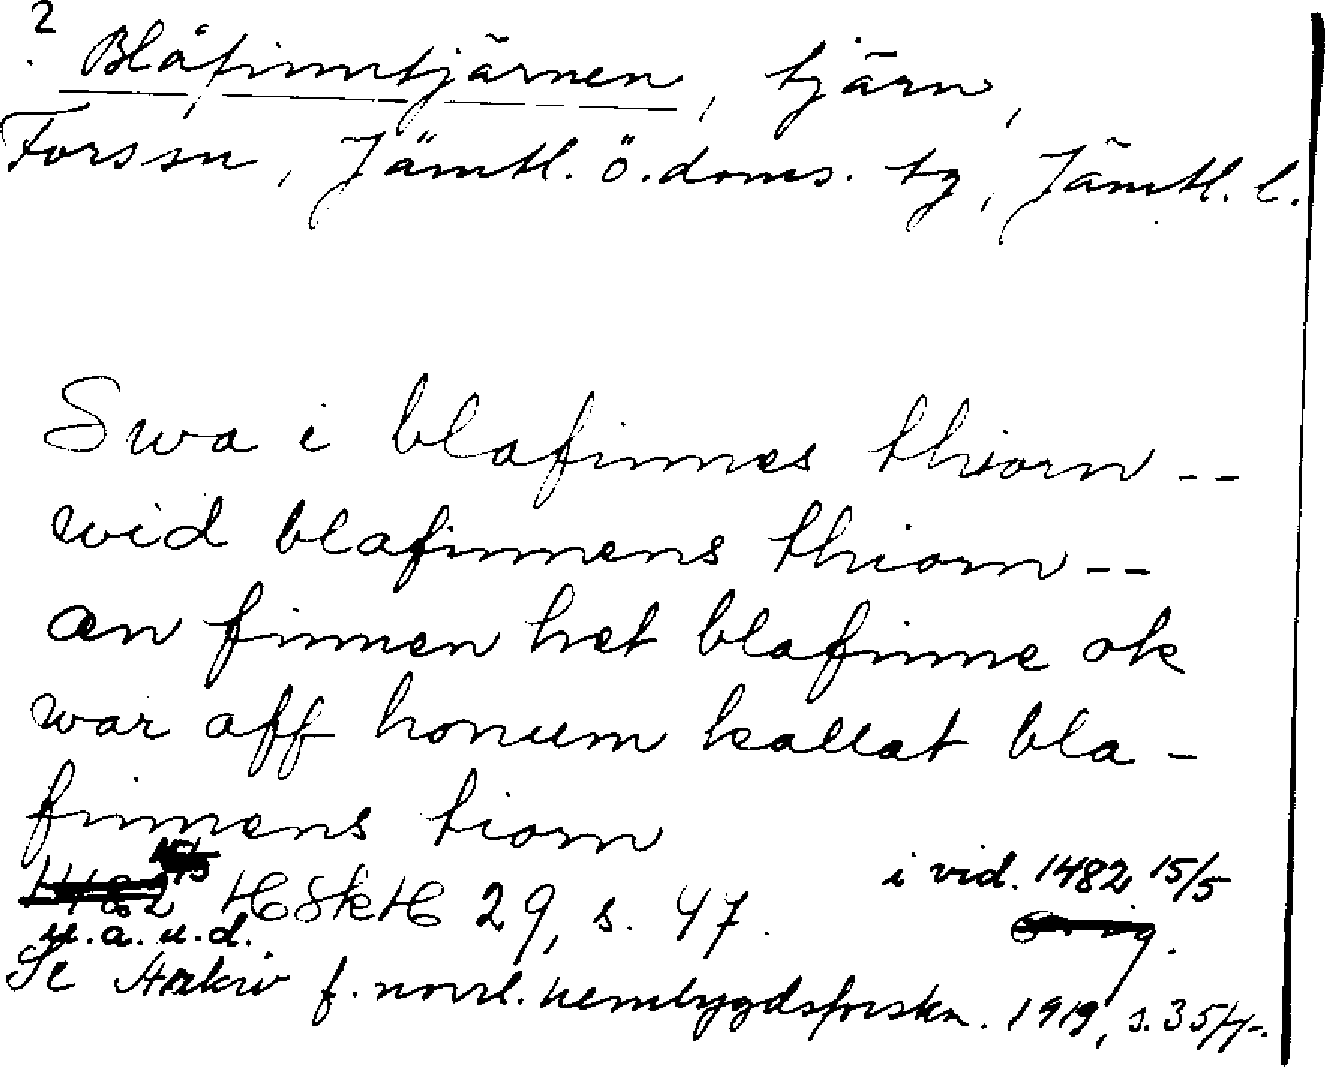 ?
Blåfinntjärnen, tjärn,
Forssn, Jämtl. ö. doms. tg, Jämtl. l.
Swa i blafinnes thiorn --
wid blafinnens thiorn --
æn finnen het blafinne ok
war aff honum kallat bla-
finnens tiorn
i vid. 1482 15/5
HSkH 29, s. 47.
u.a.u.d.
Se Arkiv f. norrl. hembygdsforskn. 1919, s. 35